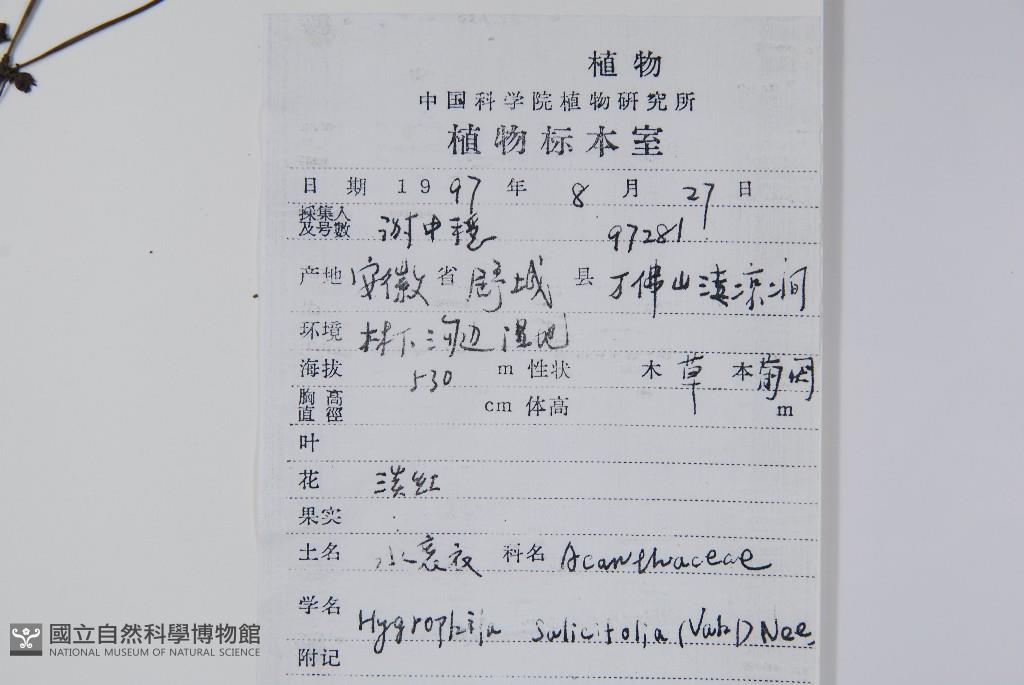 植物
中国科学院植物研究所
植物标本室
日期 1997年 8月 27日
採集人及号數 谢中稳 97281
产地 安徽省 舒城县 万佛山 凉涧
环境 林下沟边湿地
海拔 530 m 性状 木 草 本
胸高直徑 cm 体高 m
叶
花 淡红
果实
土名 水蓑衣 科名 Acanthaceae
学名 Hygrophila salicifolia (Vahl) Nee
附记
國立自然科學博物館
NATIONAL MUSEUM OF NATURAL SCIENCE